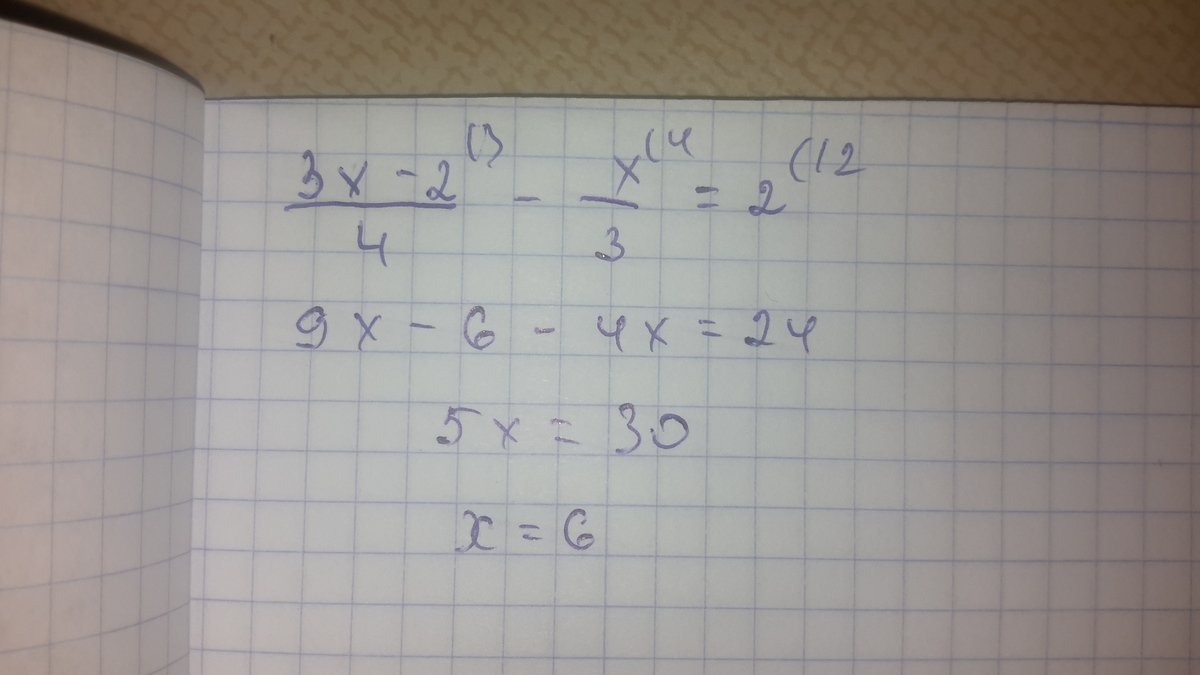 (3x - 2)/4 (3 - x/3 (4 = 2 (12
9x - 6 - 4x = 24
5x = 30
x = 6